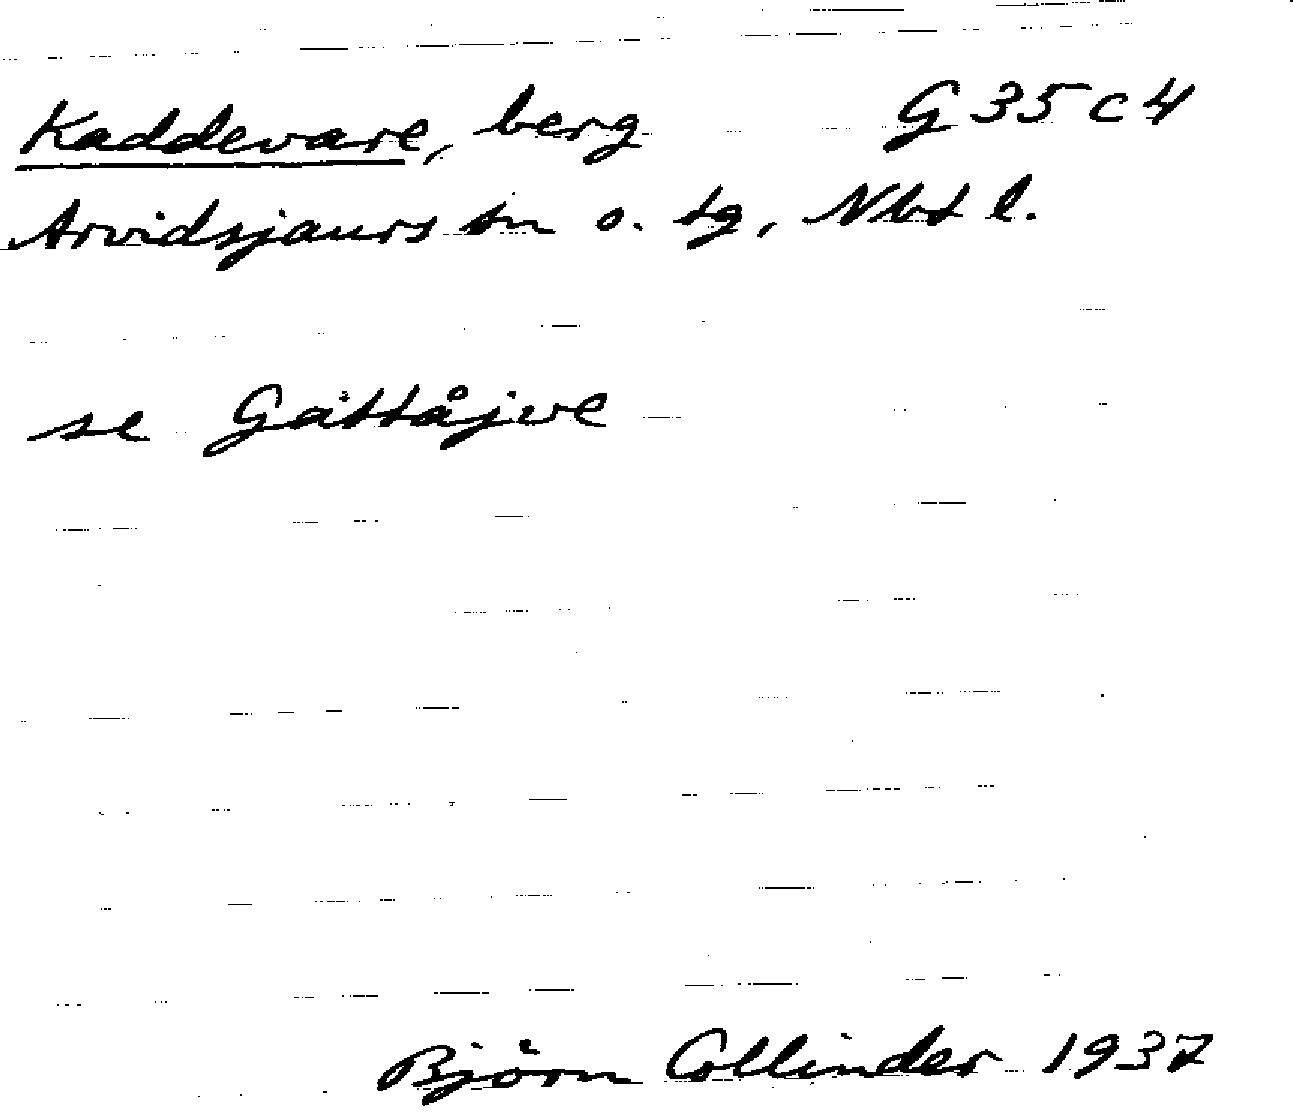 Kaddevare, berg G 35 c 4
Arvidsjaurs sn o. tg, Nbt l.
se Gåttåjve
Björn Collinder 1937